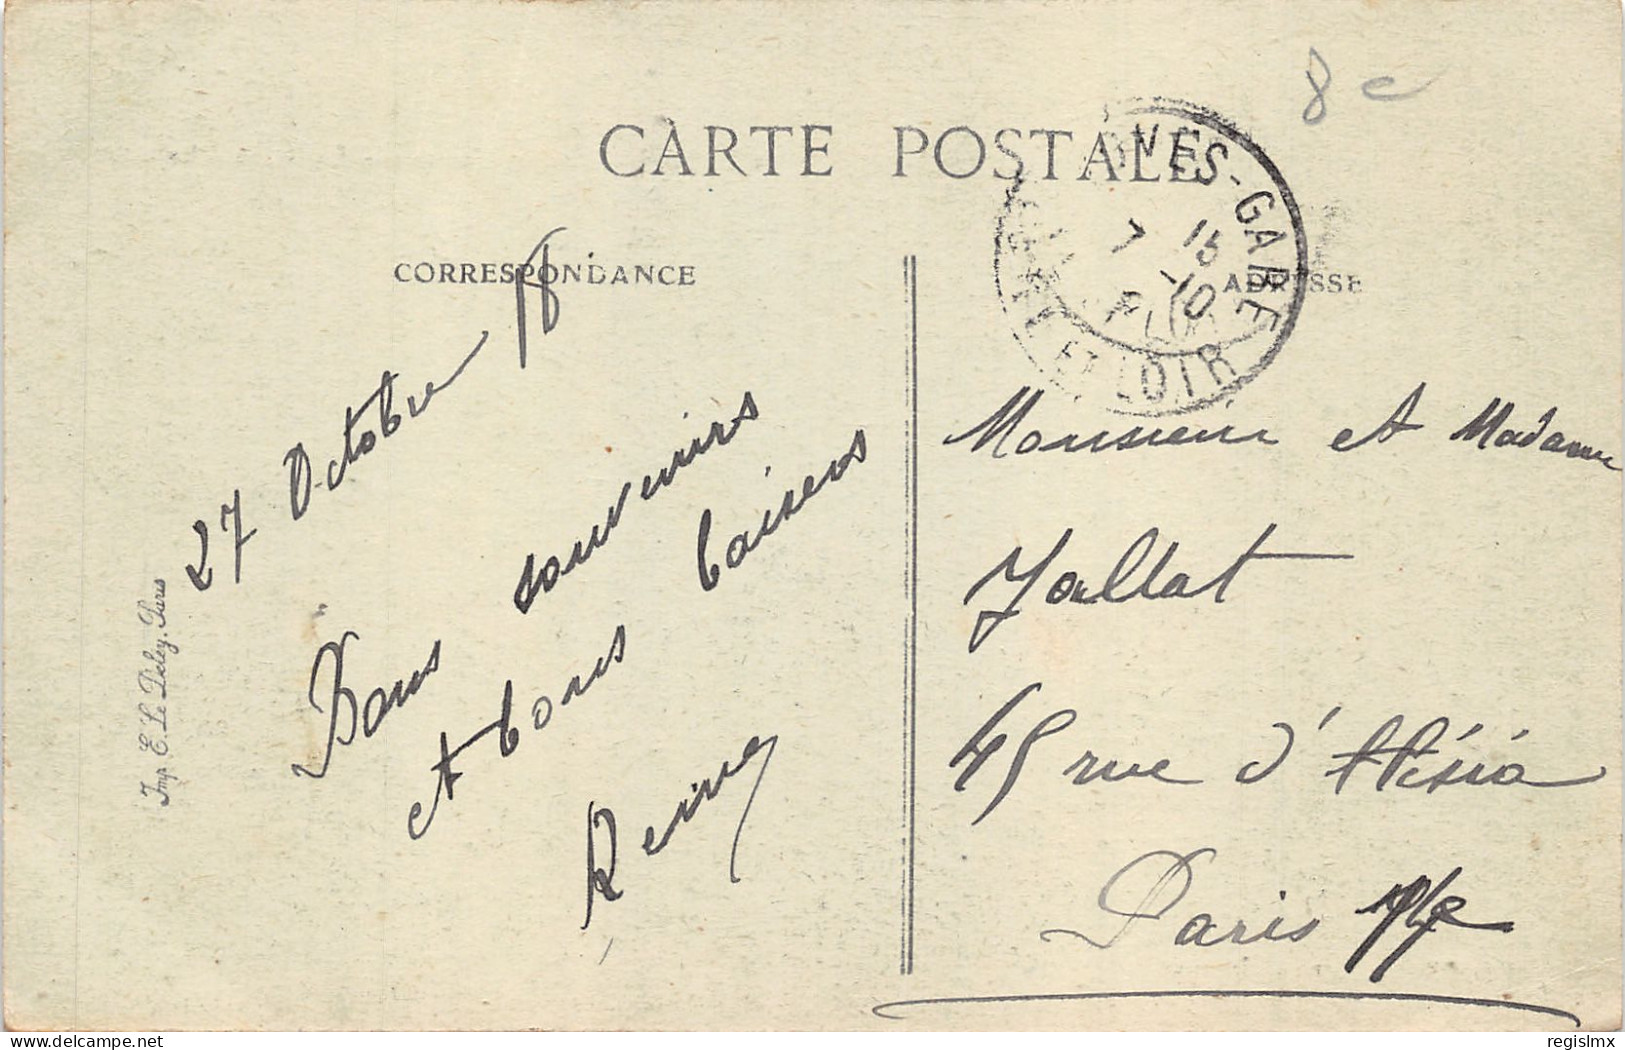 8 c
CARTE POSTALE
VES-GARE
7 15
-10
ET LOIR
CORRESPONDANCE
ADRESSE
27 Octobre 18
Bons souvenirs
et bons baisers
Reine
Monsieur et Madame
Jallat
45 rue d'Alésia
Paris
Imp. E. Le Deley, Paris
delcampe.net
regislmx